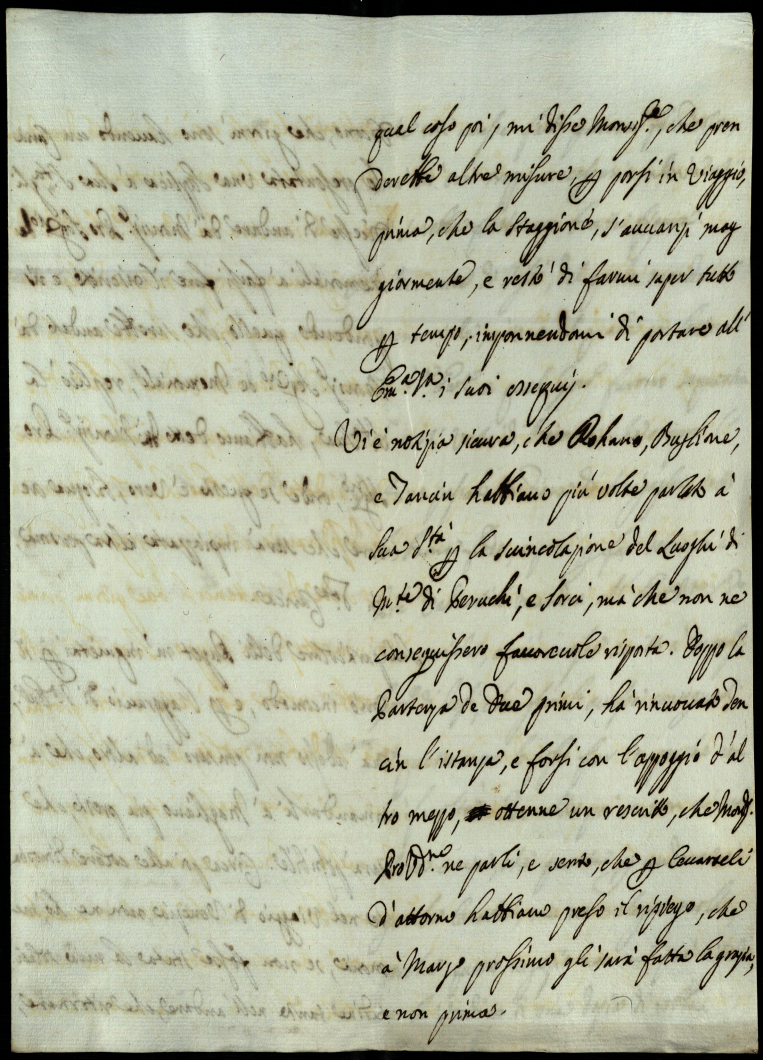 qual cosa poi, mi disse Monsig.re, che pren
derebbe altre misure, p porsi in Viaggio,
prima, che la Staggione, s'avvanzi mag
giormente, e restò di farmi saper tutto
p tempo, imponendomi di portare all'
Em.a V.a i suoi ossequij.
Vi è notizia sicura, che Rohano, Buglione,
e Tancin habbiano più volte parlato à
Sua S.tà p la svincolazione del Luoghi di
M.te di Beruchi, e Sorci, mà che non ne
conseguissero favorevole risposta. Doppo la
Partenza de due primi, hà rinuovato Ten
cin l'istanza, e forsi con l'appoggio d'al
tro mezzo, ottenne un rescritto, che Mons.
Pro D.rio ne parli, e sento, che p levarseli
d'attorno habbiano preso il ripiego, che
à Marzo prossimo gli sarà fatta la grazia,
e non prima.